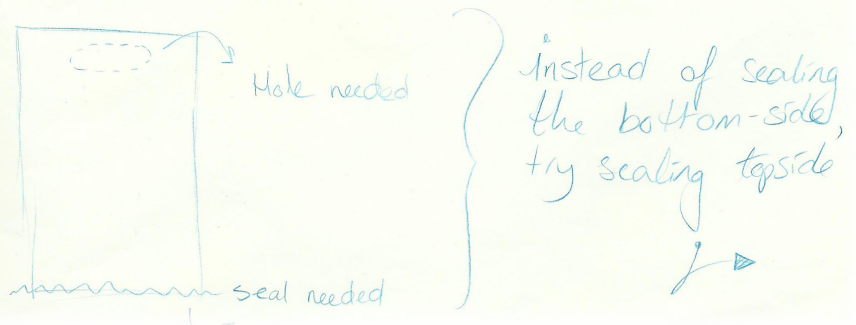 Hole needed
seal needed
instead of sealing
the bottom-side,
try sealing topside